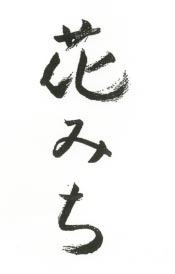 花みち